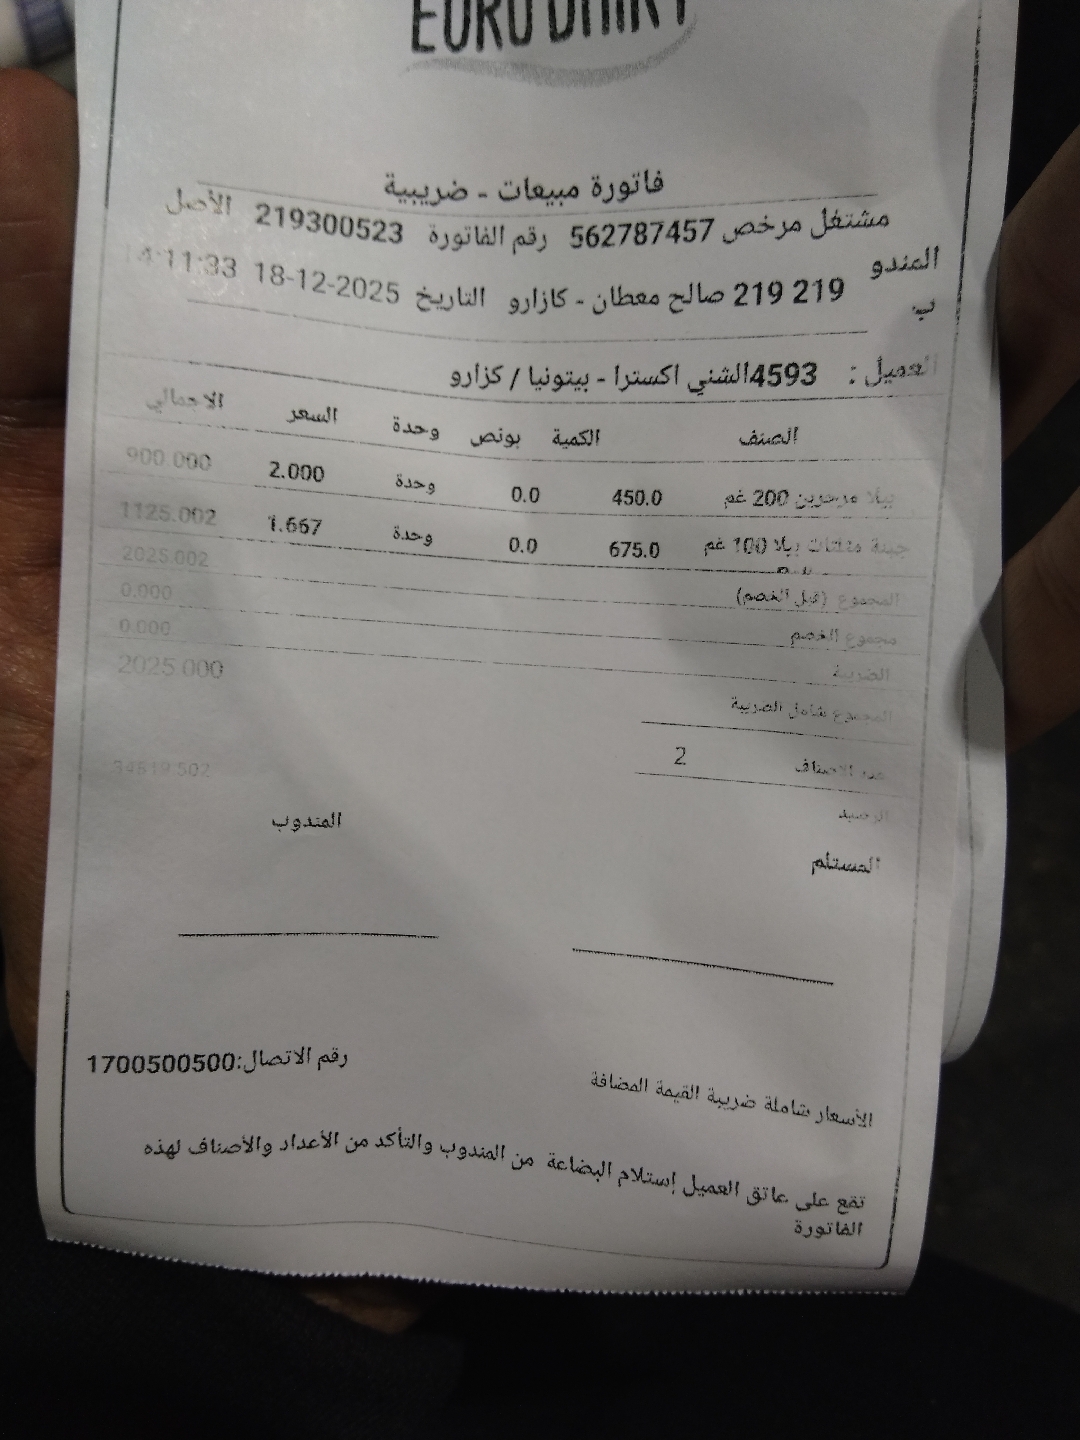 EURO DAIRY
فاتورة مبيعات - ضريبية
مشتغل مرخص 562787457 رقم الفاتورة 219300523 الأصل
المندوب 219 219 صالح معطان - كازارو التاريخ 18-12-2025 14:11:33
العميل : 4593الشني اكسترا - بيتونيا / كزارو
الصنف الكمية بونص وحدة السعر الاجمالي
بيلا مرجرين 200 غم 450.0 0.0 وحدة 2.000 900.000
جبنة مثلثات بيلا 100 غم 675.0 0.0 وحدة 1.667 1125.002
المجموع (قبل الخصم) 2025.002
مجموع الخصم 0.000
الضريبة 0.000
المجموع شامل الضريبة 2025.000
عدد الاصناف 2
الرصيد
المستلم المندوب
رقم الاتصال:1700500500
الأسعار شاملة ضريبة القيمة المضافة
تقع على عاتق العميل إستلام البضاعة من المندوب والتأكد من الأعداد والأصناف لهذه
الفاتورة